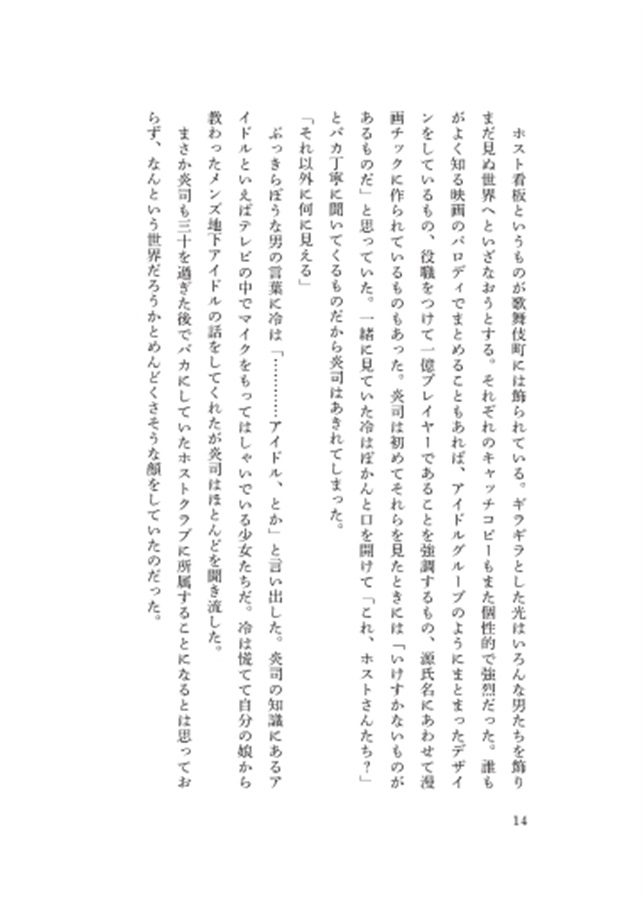 ホスト看板というものが歌舞伎町には飾られている。ギラギラとした光はいろんな男たちを飾り
まだ見ぬ世界へといざなおうとする。それぞれのキャッチコピーもまた個性的で強烈だった。誰も
がよく知る映画のパロディでまとめることもあれば、アイドルグループのようにまとまったデザイ
ンをしているもの、役職をつけて一億プレイヤーであることを強調するもの、源氏名にあわせて漫
画チックに作られているものもあった。炎司は初めてそれらを見たときには「いけすかないものが
あるものだ」と思っていた。一緒に見ていた冷はぽかんと口を開けて「これ、ホストさんたち？」
とバカ丁寧に聞いてくるものだから炎司はあきれてしまった。
「それ以外に何に見える」
ぶっきらぼうな男の言葉に冷は「…………アイドル、とか」と言い出した。炎司の知識にあるア
イドルといえばテレビの中でマイクをもってはしゃいでいる少女たちだ。冷は慌てて自分の娘から
教わったメンズ地下アイドルの話をしてくれたが炎司はほとんどを聞き流した。
まさか炎司も三十を過ぎた後でバカにしていたホストクラブに所属することになるとは思ってお
らず、なんという世界だろうかとめんどくさそうな顔をしていたのだった。
14